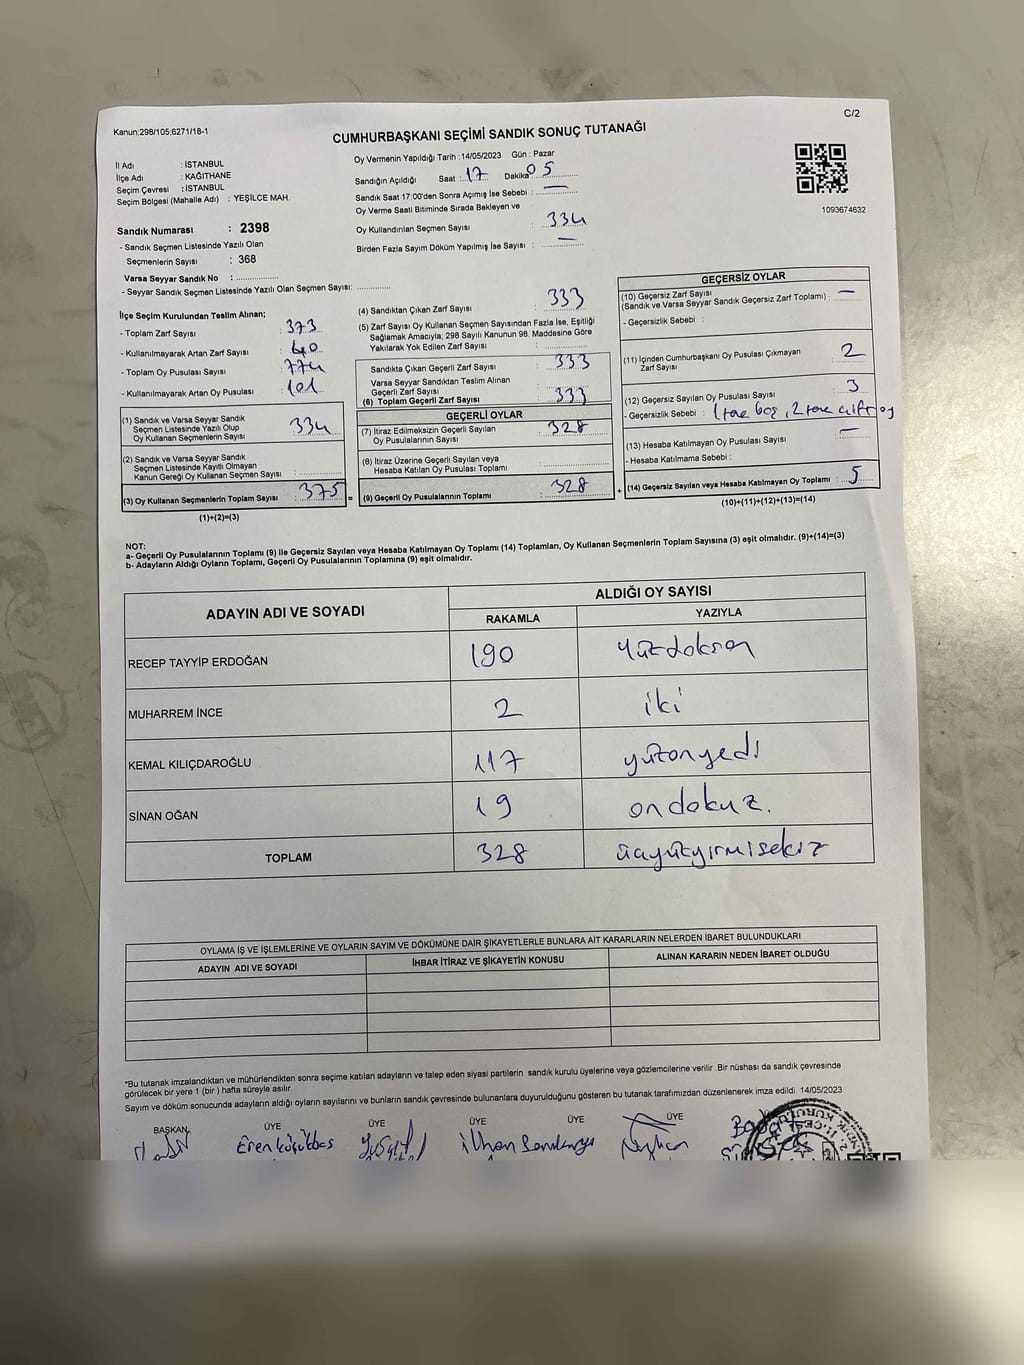 Kanun;298/105;6271/18-1
C/2
CUMHURBAŞKANI SEÇİMİ SANDIK SONUÇ TUTANAĞI
İl Adı : İSTANBUL
İlçe Adı : KAĞITHANE
Seçim Çevresi : İSTANBUL
Seçim Bölgesi (Mahalle Adı) : YEŞİLCE MAH.
Sandık Numarası : 2398
- Sandık Seçmen Listesinde Yazılı Olan
Seçmenlerin Sayısı : 368
Varsa Seyyar Sandık No : ..............
- Seyyar Sandık Seçmen Listesinde Yazılı Olan Seçmen Sayısı: ............
Oy Vermenin Yapıldığı Tarih :14/05/2023 Gün : Pazar
Sandığın Açıldığı Saat : 17 Dakika 05
Sandık Saat 17:00'den Sonra Açımış İse Sebebi : —
Oy Verme Saati Bitiminde Sırada Bekleyen ve
Oy Kullandırılan Seçmen Sayısı : 334
Birden Fazla Sayım Döküm Yapılmış İse Sayısı : —
1093674632
İlçe Seçim Kurulundan Teslim Alınan;
- Toplam Zarf Sayısı : 373
- Kullanılmayarak Artan Zarf Sayısı : 40
- Toplam Oy Pusulası Sayısı : 774
- Kullanılmayarak Artan Oy Pusulası : 101
(1) Sandık ve Varsa Seyyar Sandık
Seçmen Listesinde Yazılı Olup
Oy Kullanan Seçmenlerin Sayısı : 334
(2) Sandık ve Varsa Seyyar Sandık
Seçmen Listesinde Kayıtlı Olmayan
Kanun Gereği Oy Kullanan Seçmen Sayısı : ............
(3) Oy Kullanan Seçmenlerin Toplam Sayısı : 375 =
(1)+(2)=(3)
(4) Sandıktan Çıkan Zarf Sayısı : 333
(5) Zarf Sayısı Oy Kullanan Seçmen Sayısından Fazla İse, Eşitliği
Sağlamak Amacıyla; 298 Sayılı Kanunun 98. Maddesine Göre
Yakılarak Yok Edilen Zarf Sayısı : ............
Sandıkta Çıkan Geçerli Zarf Sayısı : 333
Varsa Seyyar Sandıktan Teslim Alınan
Geçerli Zarf Sayısı :
(6) Toplam Geçerli Zarf Sayısı : 333
GEÇERLİ OYLAR
(7) İtiraz Edilmeksizin Geçerli Sayılan
Oy Pusulalarının Sayısı : 328
(8) İtiraz Üzerine Geçerli Sayılan veya
Hesaba Katılan Oy Pusulası Toplamı : ............
(9) Geçerli Oy Pusulalarının Toplamı : 328 +
GEÇERSİZ OYLAR
(10) Geçersiz Zarf Sayısı
(Sandık ve Varsa Seyyar Sandık Geçersiz Zarf Toplamı) : —
- Geçersizlik Sebebi :
(11) İçinden Cumhurbaşkanı Oy Pusulası Çıkmayan
Zarf Sayısı : 2
(12) Geçersiz Sayılan Oy Pusulası Sayısı : 3
- Geçersizlik Sebebi : 1 tane boş, 2 tane çift oy
(13) Hesaba Katılmayan Oy Pusulası Sayısı : —
- Hesaba Katılmama Sebebi :
(14) Geçersiz Sayılan veya Hesaba Katılmayan Oy Toplamı : 5
(10)+(11)+(12)+(13)=(14)
NOT:
a- Geçerli Oy Pusulalarının Toplamı (9) ile Geçersiz Sayılan veya Hesaba Katılmayan Oy Toplamı (14) Toplamları, Oy Kullanan Seçmenlerin Toplam Sayısına (3) eşit olmalıdır. (9)+(14)=(3)
b- Adayların Aldığı Oyların Toplamı, Geçerli Oy Pusulalarının Toplamına (9) eşit olmalıdır.
ADAYIN ADI VE SOYADI
ALDIĞI OY SAYISI
RAKAMLA YAZIYLA
RECEP TAYYİP ERDOĞAN 190 yüzdoksan
MUHARREM İNCE 2 iki
KEMAL KILIÇDAROĞLU 117 yüzonyedi
SİNAN OĞAN 19 ondokuz.
TOPLAM 328 üçyüzyirmisekiz
OYLAMA İŞ VE İŞLEMLERİNE VE OYLARIN SAYIM VE DÖKÜMÜNE DAİR ŞİKAYETLERLE BUNLARA AİT KARARLARIN NELERDEN İBARET BULUNDUKLARI
ADAYIN ADI VE SOYADI İHBAR İTİRAZ VE ŞİKAYETİN KONUSU ALINAN KARARIN NEDEN İBARET OLDUĞU
*Bu tutanak imzalandıktan ve mühürlendikten sonra seçime katılan adayların ve talep eden siyasi partilerin sandık kurulu üyelerine veya gözlemcilerine verilir. Bir nüshası da sandık çevresinde
görülecek bir yere 1 (bir ) hafta süreyle asılır.
Sayım ve döküm sonucunda adayların aldığı oyların sayılarını ve bunların sandık çevresinde bulunanlara duyurulduğunu gösteren bu tutanak tarafımızdan düzenlenerek imza edildi. 14/05/2023
BAŞKAN ÜYE ÜYE ÜYE ÜYE
Eren küçükbaş
İlhan